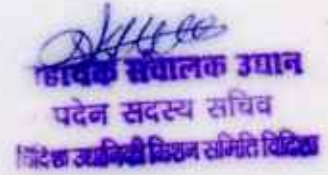 सहायक संचालक उद्यान
पदेन सदस्य सचिव
विदिशा उद्यानिकी मिशन समिति विदिशा